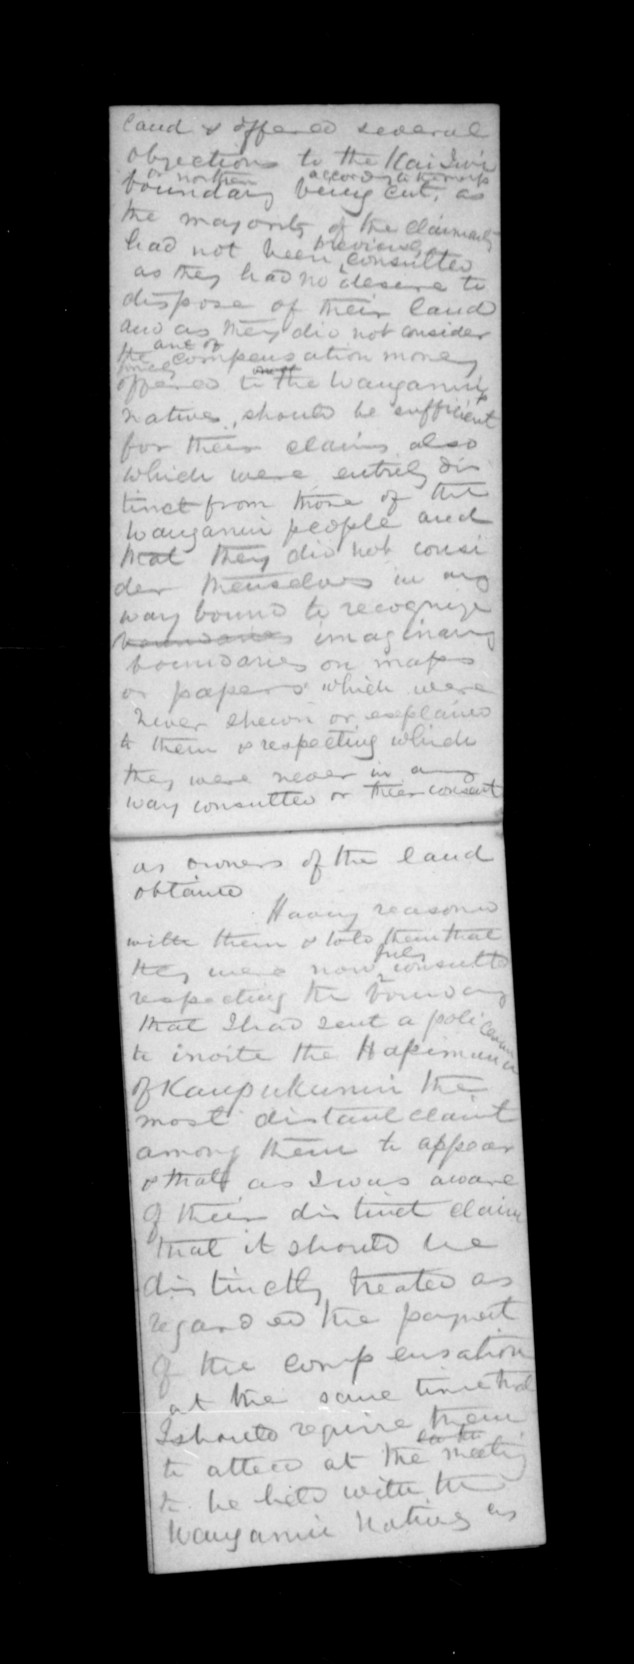 land & offered several
objections to the Kai Iwi
or northern according to the maps
boundary being cut, as
the majority of the claimants
had not been previously consulted
as they had no desire to
dispose of their land
and as they did not consider
the compensation money
offered to the Wanganui
natives, should be sufficient
for their claims also
which were entirely dis
tinct from those of the
Wanganui people and
that they did not consi
der themselves in any
way bound to recognize
boundaries imaginary
boundaries on maps
or papers which were
never shewn or explained
to them & respecting which
they were never in any
way consulted or their consent
as owners of the land
obtained
Having reasoned
with them & told them that
they were now fully consulted
respecting the boundary
that I had sent a policeman
to invite the
of Kaupukunui the
most distant claimt
among them to appear
& that as I was aware
of their distinct claim
that it should be
distinctly treated as
regarded the payment
of the compensation
at the same time that
I should require them
to attend at the meeting
to be held with the
Wanganui Natives as